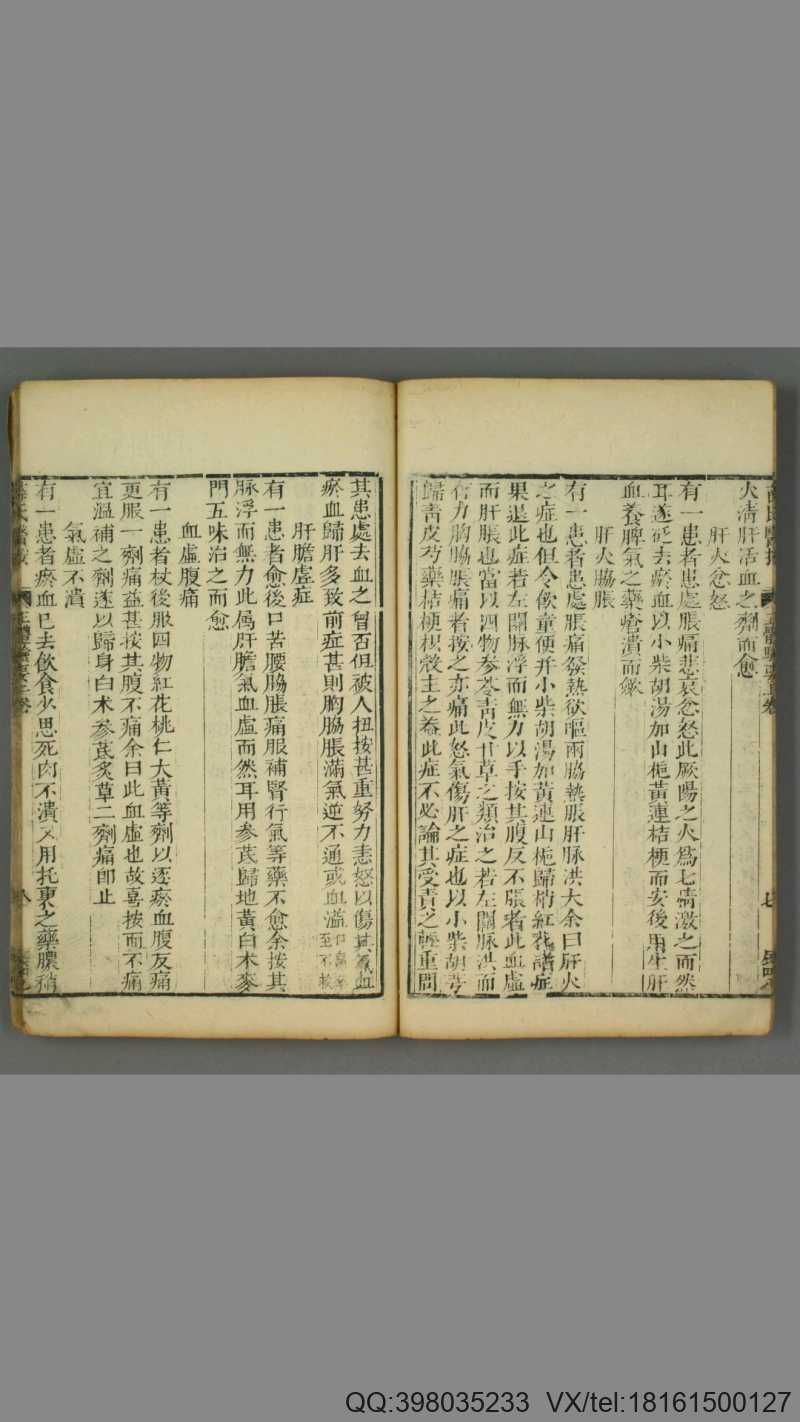 火清肝活血之劑而愈
肝火忿怒
有一患者患處脹痛悲哀忿怒此厥陽之火爲七情激之而然
耳遂砭去瘀血以小柴胡湯加山梔黃連桔梗而安後用生肝
血養脾氣之藥瘡潰而斂
肝火脇脹
有一患者患處脹痛發熱欲嘔兩脇熱脹肝脉洪大余曰肝火
之症也但令飲童便并小柴胡湯加黃連山梔歸梢紅花諸症
果退此症若左關脉浮而無力以手按其腹反不脹者此血虛
而肝脹也當以四物參苓青皮甘草之類治之若左關脉洪而
有力胸脇脹痛者按之亦痛此怒氣傷肝之症也以小柴胡芎
歸青皮芍藥桔梗枳殼主之葢此症不必論其受責之輕重問
其患處去血之曾否但被人扭按甚重努力恚怒以傷其氣血
瘀血歸肝多致前症甚則胸脇脹滿氣逆不通或血溢口鼻
至不救
肝膽虛症
有一患者愈後口苦腰脇脹痛服補腎行氣等藥不愈余按其
脉浮而無力此属肝膽氣血虛而然耳用參茋歸地黃白术麥
門五味治之而愈
血虛腹痛
有一患者杖後服四物紅花桃仁大黃等劑以逐瘀血腹反痛
更服一劑痛益甚按其腹不痛余曰此血虛也故喜按而不痛
宜溫補之劑遂以歸身白术參茋炙草二劑痛卽止
氣虛不潰
有一患者瘀血已去飲食少思死肉不潰又用托裏之藥膿稍
QQ:398035233 VX/tel:18161500127